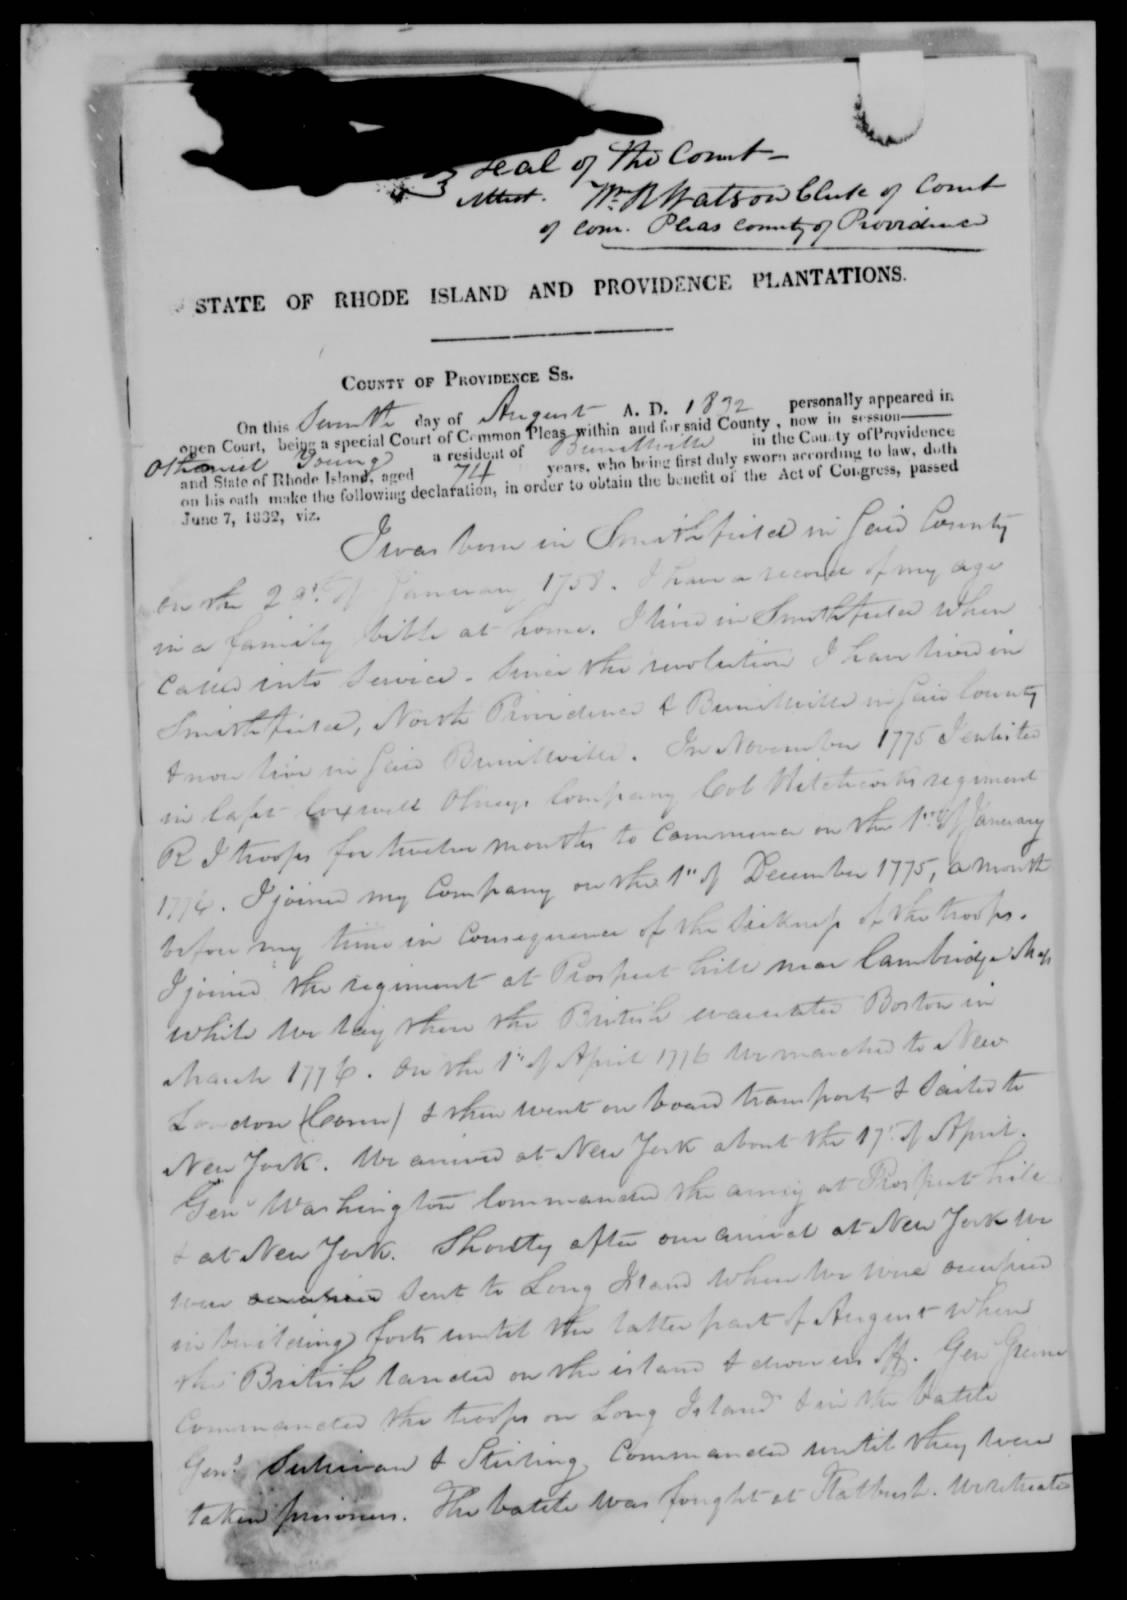 Seal of the Court -
Attest. Wm R Watson Clerk of Court
of Com. Pleas County of Providence
STATE OF RHODE ISLAND AND PROVIDENCE PLANTATIONS.
COUNTY OF PROVIDENCE Ss.
On this Seventh day of August A. D. 1832 personally appeared in
open Court, being a special Court of Common Pleas within and for said County, now in session
Othaniel Young a resident of Burrillville in the County of Providence
and State of Rhode Island, aged 74 years, who being first duly sworn according to law, doth
on his oath make the following declaration, in order to obtain the benefit of the Act of Congress, passed
June 7, 1832, viz.
I was born in Smithfield in said County
on the of January 1758. I have a record of my age
in a family bible at home. I lived in Smithfield when
called into service. Since the revolution I have lived in
Smithfield, North Providence & Burrillville in said County
& now live in said Burrillville. In November 1775 I enlisted
in Capt Coggswell Olneys Company Col Hitchcocks regiment
R I troops for twelve months to commence on the 1st of January
1776. I joined my company on the 1st of December 1775, a month
before my time in consequence of the sickness of the troops.
I joined the regiment at Prospect hill near Cambridge Mass
while we lay there the British evacuated Boston in
March 1776. On the 1st of April 1776 we marched to New
London (Conn) & then went on board transports & sailed to
New York. We arrived at New York about the 17th of April.
Genl Washington commanded the army at Prospect hill
& at New York. Shortly after our arrival at New York we
were sent to Long Island where we were occupied
in building forts until the latter part of August when
the British landed on the island & drove us off. Gen Greene
commanded the troops on Long Island & in the battle
Genls Sulivan & Stirling commanded until they were
taken prisoners. The battle was fought at Flatbush. We retreated